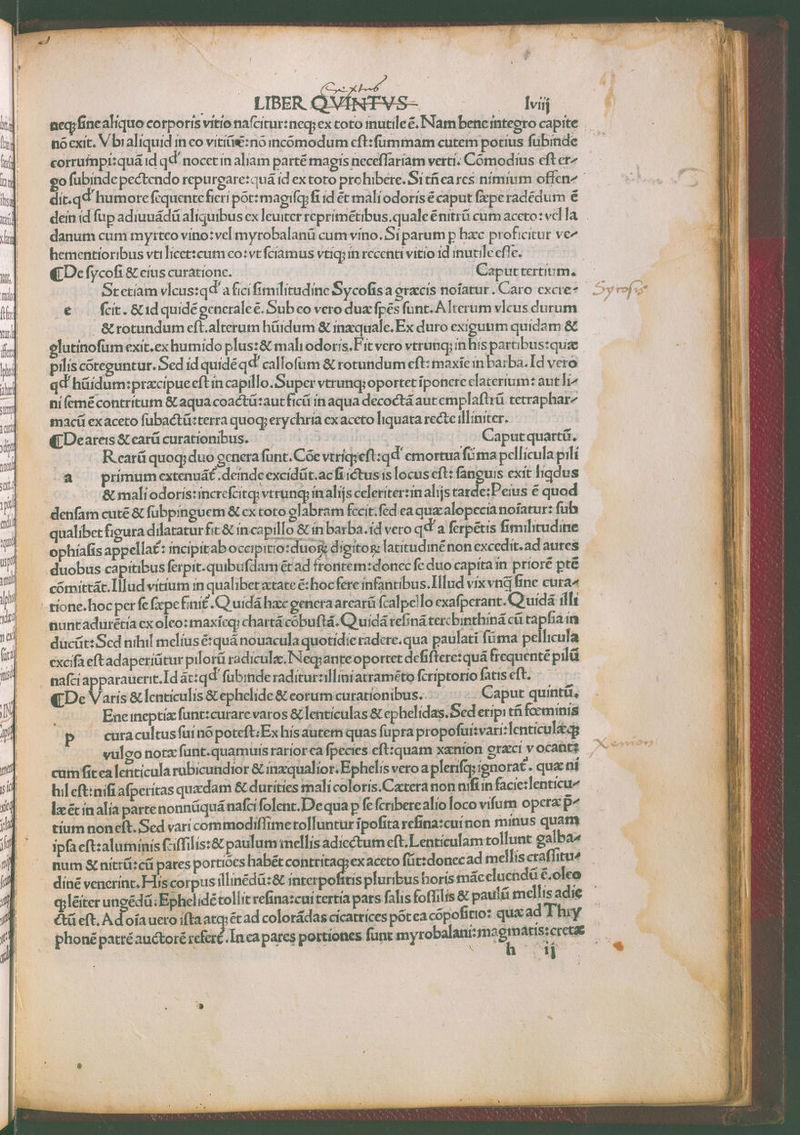 LIBER QVINTVS lviij
neqꝫ sine aliquo corporis vitio nascitur:neqꝫ ex toto inutile ē. Nam bene integro capite
nō exit. Vbi aliquid in eo vitiū ē:nō incōmodum est:summam cutem potius subinde
corrumpi:quā id qd' nocet in aliam partē magis necessariam verti. Cōmodius est er-
go subinde pectendo repurgare:quā id ex toto prohibere. Si tn̄ ea res nimium offen-
dit.qd' humore sequente fieri pōt:magisqꝫ si id et mali odoris ē caput sæpe radēdum ē
dein id sup adiuuādū aliquibus ex leuiter reprimētibus.quale ē nitrū cum aceto:vel la
danum cum myrteo vino:vel myrobalanū cum vino. Si parum p hæc proficitur ve-
hementioribus vti licet:cum eo:vt sciamus vtiqꝫ in recenti vitio id inutile esse.
⸿De sycosi & eius curatione. Caput tertium.
St etiam vlcus:qd' a fici similitudine Sycosis a græcis noīatur. Caro excre- Sycosis
e scit. & id quidē generale ē. Sub eo vero duæ spēs sunt. Alterum vlcus durum
& rotundum est.alterum hūidum & inæquale. Ex duro exiguum quidam &
glutinosum exit.ex humido plus:& mali odoris. Fit vero vtrunqꝫ in his partibus:quæ
pilis cōteguntur. Sed id quidē qd' callosum & rotundum est: maxīe in barba. Id vero
qd' hūidum:præcipue est in capillo. Super vtrunqꝫ oportet īponere elaterium: aut li-
ni semē contritum & aqua coactū:aut ficū in aqua decoctā aut emplastrū tetraphar-
macū ex aceto subactū:terra quoqꝫ erychria ex aceto liquata recte illinitur.
⸿De areis & earū curationibus. Caput quartū.
R earū quoqꝫ duo genera sunt. Cōe vtriqꝫ est:qd' emortua sūma pellicula pili
a primum extenuāt̄.deinde excidūt.ac si ictus is locus est: sanguis exit liqdus
& mali odoris:increscitqꝫ vtrunqꝫ in alijs celeriter:in alijs tarde:Peius ē quod
densam cutē & subpinguem & ex toto glabram fecit.sed ea quæ alopecia noīatur: sub
qualibet figura dilatatur fit & in capillo & in barba.id vero qd' a serpētis similitudine
ophiasis appellat̄: incipit ab occipitio:duoꝝ digitoꝝ latitudinē non excedit.ad aures
duobus capitibus serpit.quibusdam ēt ad frontem:donec se duo capita in priorē ptē
cōmittāt. Illud vitium in qualibet ætate ē:hoc fere infantibus. Illud vix vnq̄ sine cura-
tione.hoc per se sæpe finit̄. Quidā hæc genera arearū scalpello exasperant. Quidā illi
nunt adurētia ex oleo: maxīeqꝫ chartā cōbustā. Quidā resinā terebinthinā cū tapsia in
ducūt:Sed nihil melius ē:quā nouacula quotidie radere.qua paulati sūma pellicula
excisa est adaperiūtur pilorū radiculæ. Neqꝫ ante oportet desistere:quā frequentē pilū
nasci apparauerit. Id āt:qd' subinde raditur:illini atramēto scriptorio satis est.
⸿De Varis & lenticulis & ephelide & eorum curationibus. Caput quintū.
Ene ineptiæ sunt:curare varos & lenticulas & ephelidas. Sed eripi tn̄ fœminis
p cura cultus sui nō potest:Ex his autem quas supra proposui:vari:lenticulæqꝫ
vulgo notæ sunt.quamuis rarior ea species est:quam xænion græci vocant: Xænion
cum sit ea lenticula rubicundior & inæqualior. Ephelis vero a plerisqꝫ ignorat̄. quæ ni
hil est:nisi asperitas quædam & durities mali coloris. Cætera non nisi in facie:lenticu-
læ ēt in alia parte nonnūquā nasci solent. De qua p se scribere alio loco visum operæ p̄-
tium non est. Sed vari commodissime tolluntur īposita resina:cui non minus quam
ipsa est:aluminis scissilis:& paulum mellis adiectum est. Lenticulam tollunt galba-
num & nitrū:cū pares portiōes habēt contritaqꝫ ex aceto sūt:donec ad mellis crassitu-
dinē venerint. His corpus illinēdū:& interpositis pluribus horis māe eluendū ē.oleo
qꝫ lēiter ungēdū. Ephelidē tollit resina:cui tertia pars salis fossilis & paulū mellis adie
ctū est. Ad oīa uero ista atqꝫ ēt ad colorādas cicatrices pōt ea cōpositio: quæ ad Thry
phonē patrē auctorē refert̄. In ea pares portiones sunt myrobalani:magmatis:cretæ
h ij